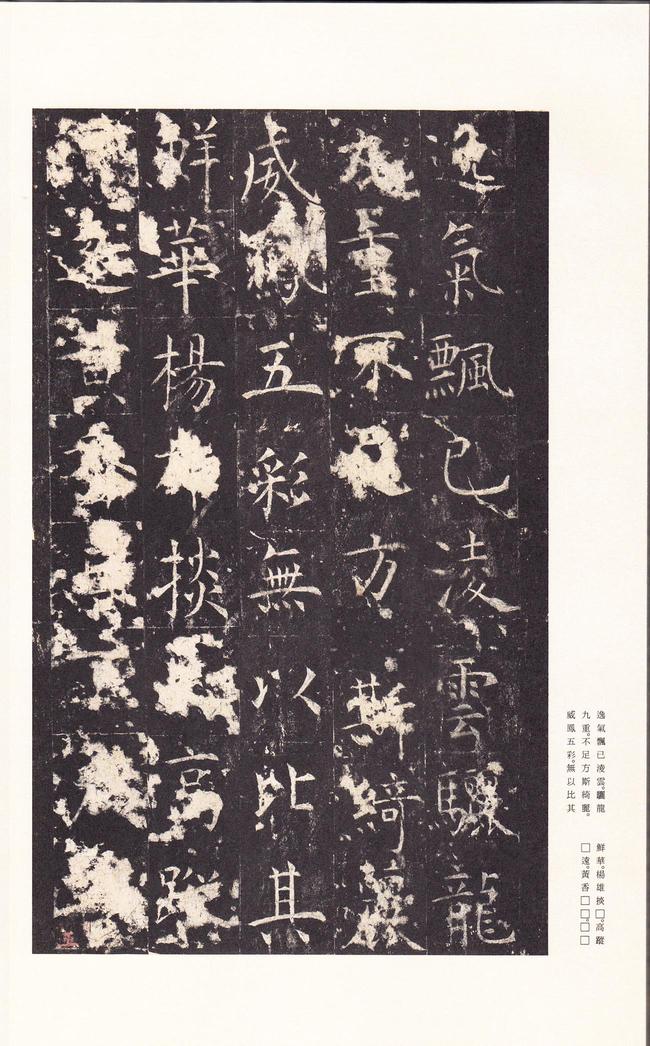 逸氣飄已淩雲驪龍
九重不足方斯綺麗
威鳳五彩無以比其
鮮華楊雄掞高蹤
遠黃香
逸氣飄已淩雲。驪龍
九重。不足方斯綺麗。
威鳳五彩。無以比其
鮮華。楊雄掞□。高蹤
□遠。黃香□□。□□